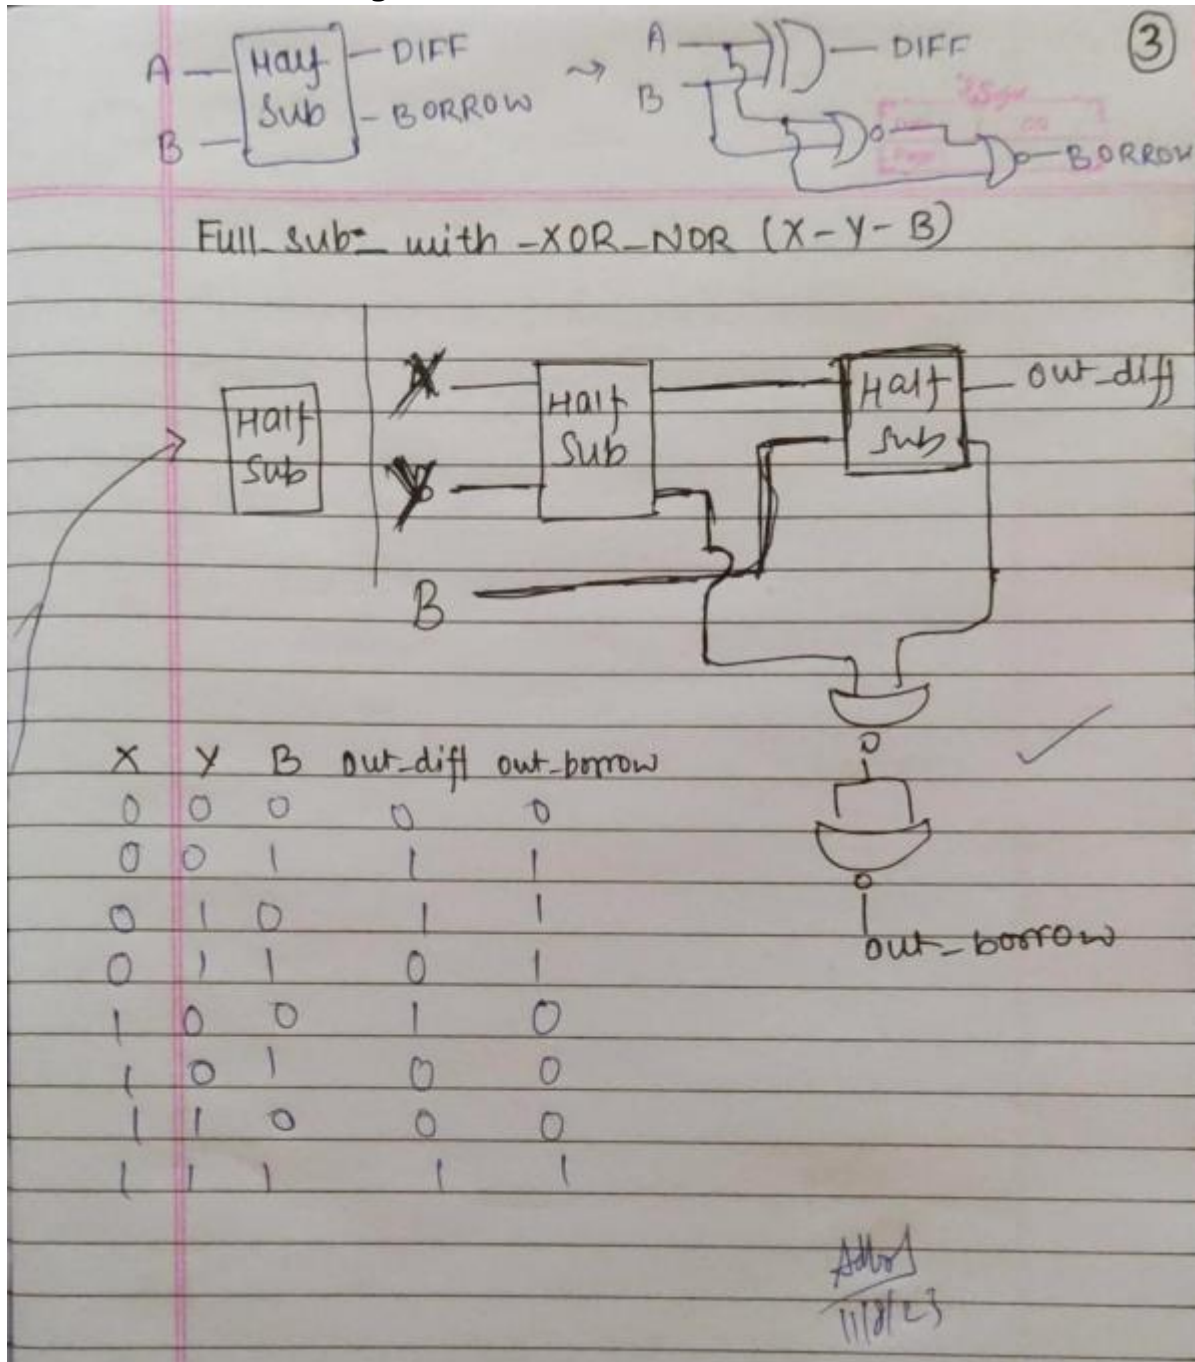 ③
A Half Sub DIFF BORROW
B
A DIFF
B BORROW
Full_sub_ with -XOR_NOR (X-Y-B)
Half Sub
X Half Sub Half Sub out_diff
Y
B
X Y B out_diff out_borrow
0 0 0 0 0
0 0 1 1 1
0 1 0 1 1
0 1 1 0 1
1 0 0 1 0
1 0 1 0 0
1 1 0 0 0
1 1 1 1 1
out_borrow
11/8/23